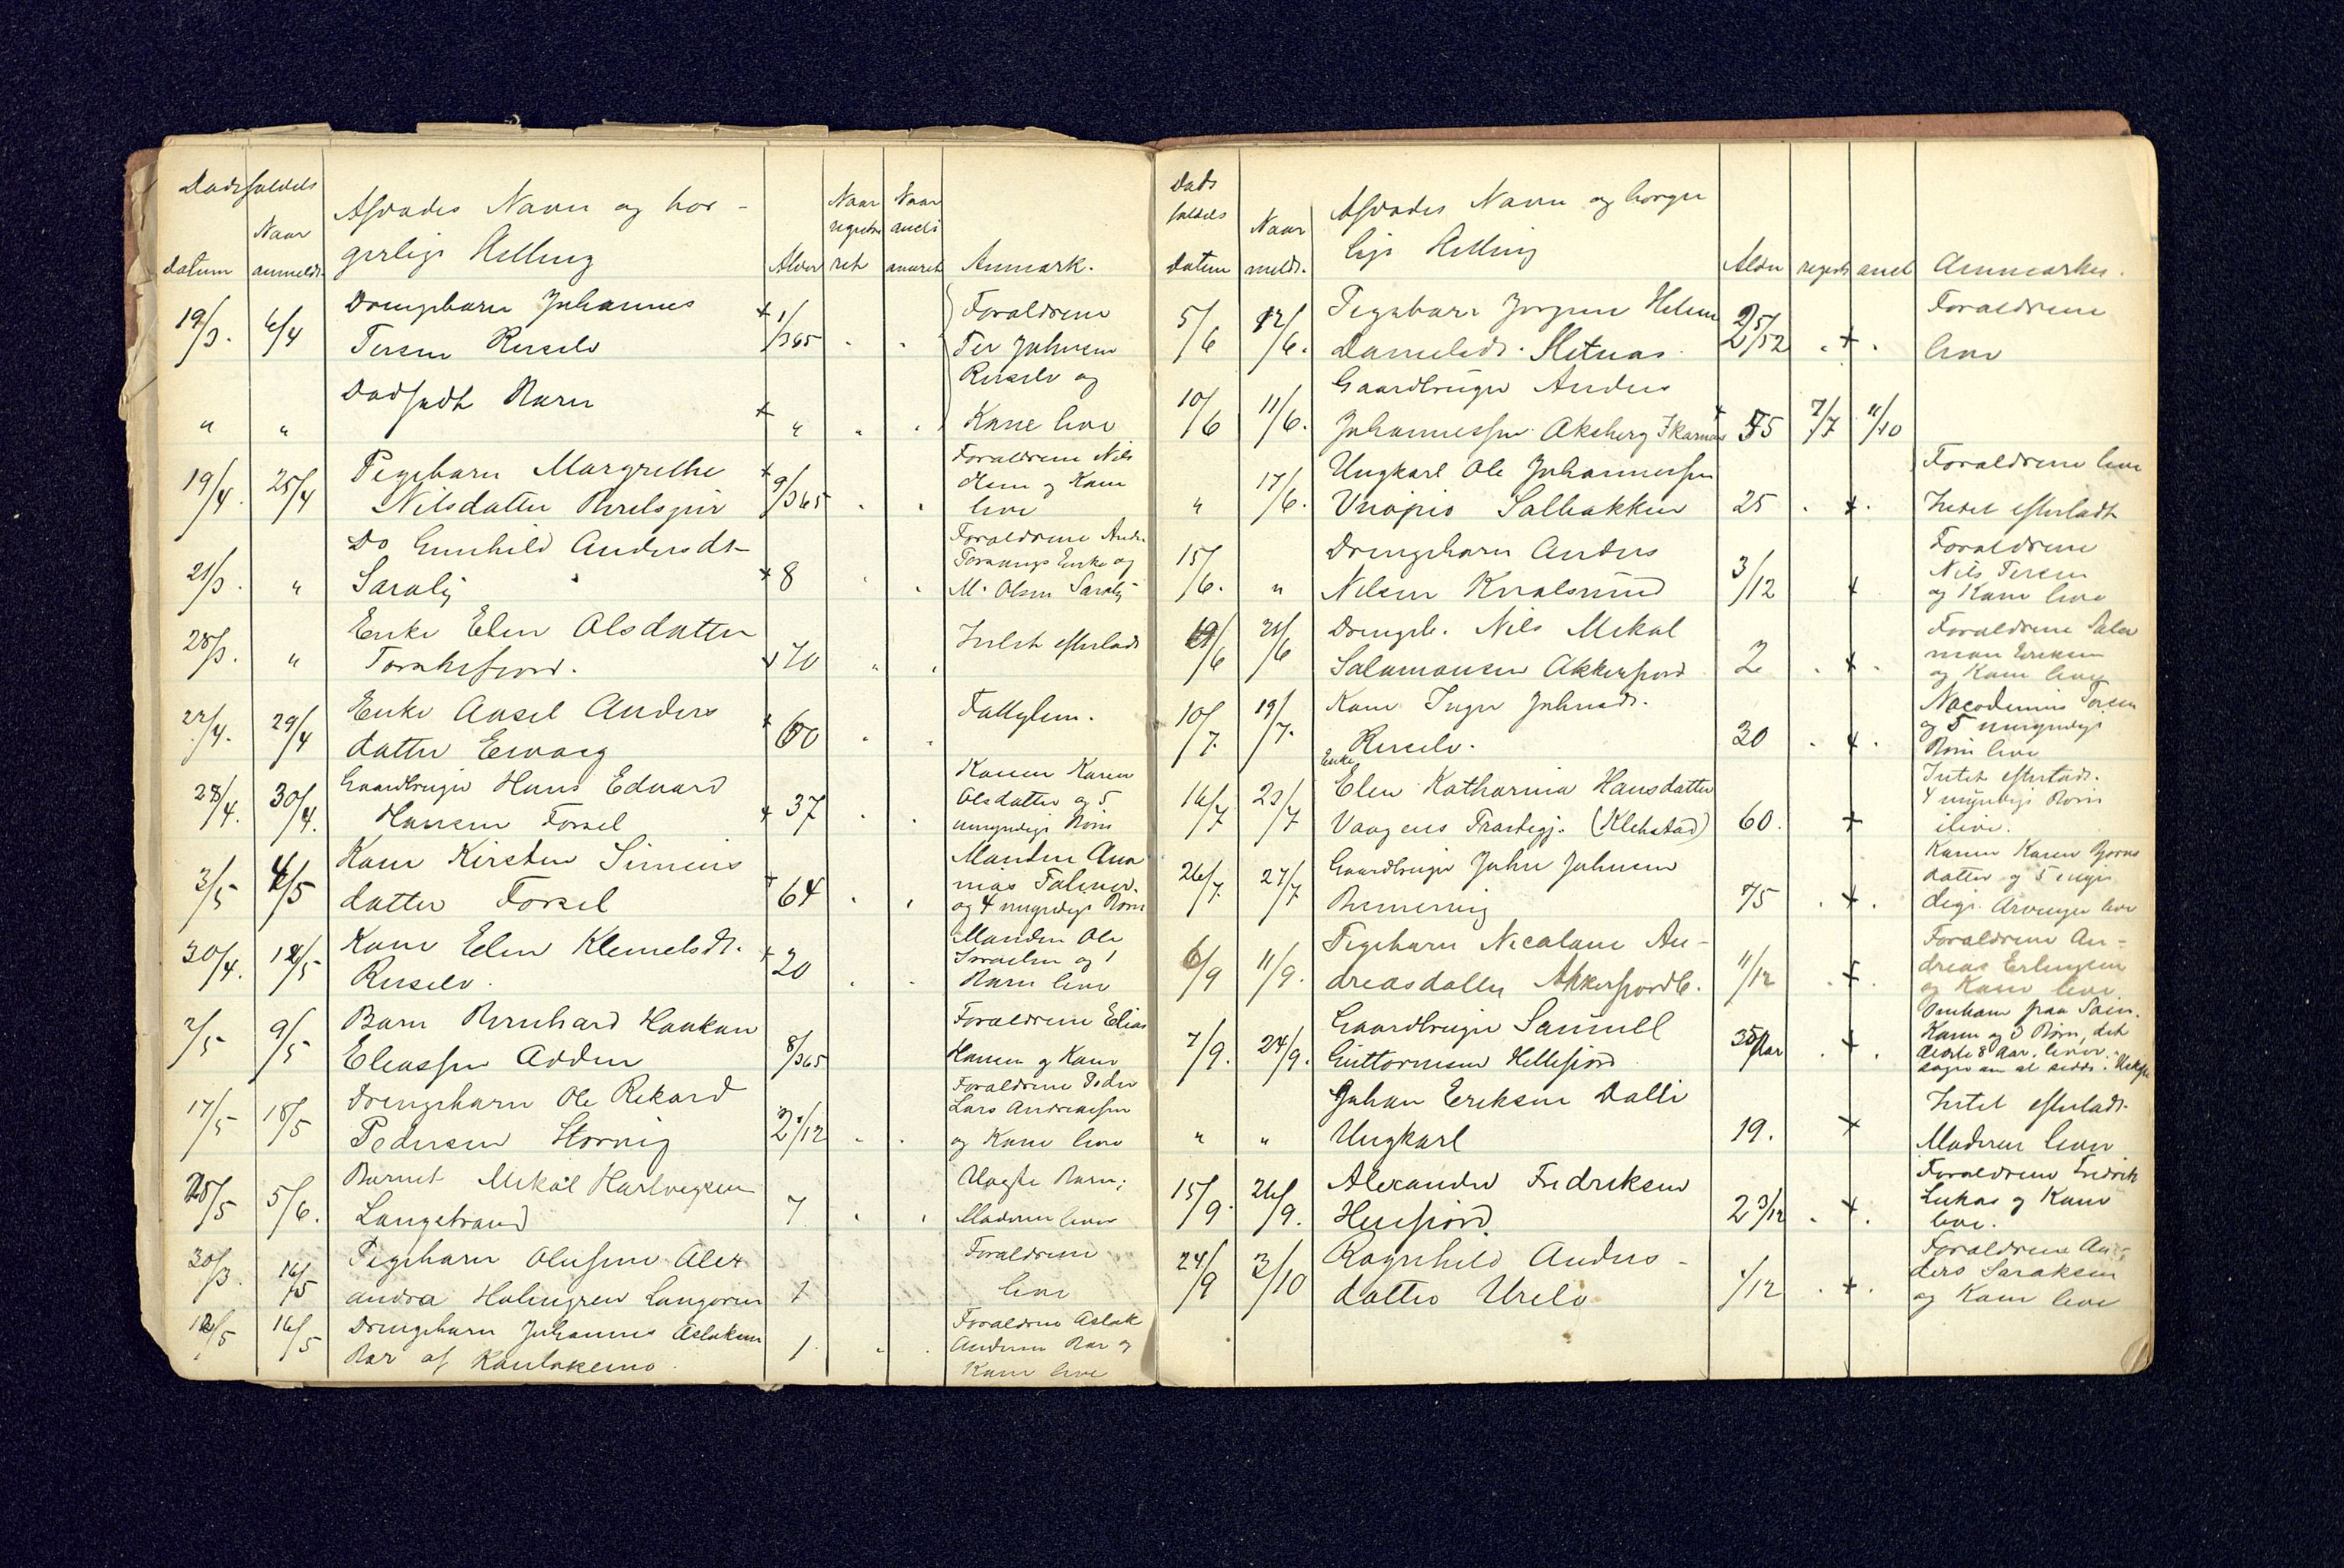 Dødsfaldets
datum
Naar
anmeldt.
Afdødes Navn og bor-
gerlige Stilling
Alder
Naar
registre
ret
Naar
andi
anmeret
Anmærk.
19/3. 6/4 Drengebarn Johannes
Tersen Russelv + 1/365
Forældrene
Ter Johnsen
Russelv og
Kone leve
" " Dødfødt Barn + "
19/4. 25/4 Pigebarn Margrethe
Nilsdatter + 9/365
Forældrene Nils
Olsen og Kone
leve
21/3. " Do Gunhild Andersdt
Saraby + 8
Forældrene
Enke og
M. Olsen Saraby
28/3. " Enke Elen Olsdatter
+ 70 Intet efterladt
22/4. 29/4 Enke Aasel Anders
datter + 60 Fattiglem.
28/4. 30/4. Gaardbruger Hans Edvard
Hansen Forsøl + 37
Konen Karen
Olsdatter og 5
umyndige Børn
3/5 4/5 Kone Kirsten Simons
datter Forsøl + 64
Manden Ana
nias
og 4 myndige Børn
30/4. 12/5 Kone Elen Klemetsdt.
Russelv. + 20
Manden Ole
Israelsen og 1
Barn leve
2/5 9/5 Barn Bernhard Haakon
Eleassen 8/365
Forældrene Elias
Hansen og Kone
17/5 18/5 Drengebarn Ole Rikard
Pedersen Storvig 2 /12
Forældrene Peder
Lars Andreassen
og Kone leve
25/5 5/6. Barnet Mikal Hartvigsen
Langstrand 7
Uægte Barn;
Moderen lever
30/3. 16/5 Pigebarn Olufine Alex
andra Holmgren 1
Forældrene
leve
12/5 16/5 Drengebarn Johannes Aslaksen
Bær af Kautokeino. 1.
Forældrene Aslak
Andersen Bær og
Kone leve
Døds
faldets
datum
Naar
meldt.
Afdødes Navn og borger
lige Stilling
Alder
regist
anel
Anmærkn.
5/6 12/6. Pigebarn Jørgine Helene
Danielsdt. 2 5/52 . + .
Forældrene
leve
10/6 11/6. Gaardbruger Anders
Johannessen Akkberg + 55 7/7 11/10
" 17/6. Ungkarl Ole Johannessen
Saltbakken 25 . + .
Forældrene leve
Intet efterladt
15/6. " Drengebarn Anders
Nilsen Kvalsund 3/12 +
Forældrene
Nils Tersen
og Kone leve
19/6 21/6 Drengeb. Nils Mikal
Salamonsen Akkerfjord 2 . + .
Forældrene Salo
mon Eriksen
og Kone leve
10/7. 19/7. Kone Inger Johnsdt.
Russelv. 30 . + .
Nicodemus Tersen
og 5 umyndige
Børn leve
16/7 23/7 Enke
Elen Katharina Hansdatter
Vaagens Præstegj. (Klebstad) 60. +
Intet efterladt.
4 myndige Børn
ilive.
26/7 27/7 Gaardbruger John Johnsen
75 . + .
Konen Karen Bjørns
datter og 5 myn
dige Arvinger leve
6/9 11/9. Pigebarn Nicoline An-
dreasdatter Akkerfjordb. 11/12 . + .
Forældrene An-
dreas Erlingsen
og Kone leve
7/9. 24/9. Gaardbruger Samuell
Guttormsen Hellefjord 35 Aar . + .
Omkom paa Søen.
Kone og 3 Børn, det
ældste 8 Aar, lever.
" " Johan Eriksen Dalli
Ungkarl 19. +
Intet efterladt.
Moderen lever
15/9. 26/9. Alexander Fredriksen
2 3/12 . + .
Forældrene Fredrik
Lukas og Kone
leve.
24/9 3/10 Ragnhild Anders-
datter 1/12 . + .
Forældrene An-
ders Isaksen
og Kone leve